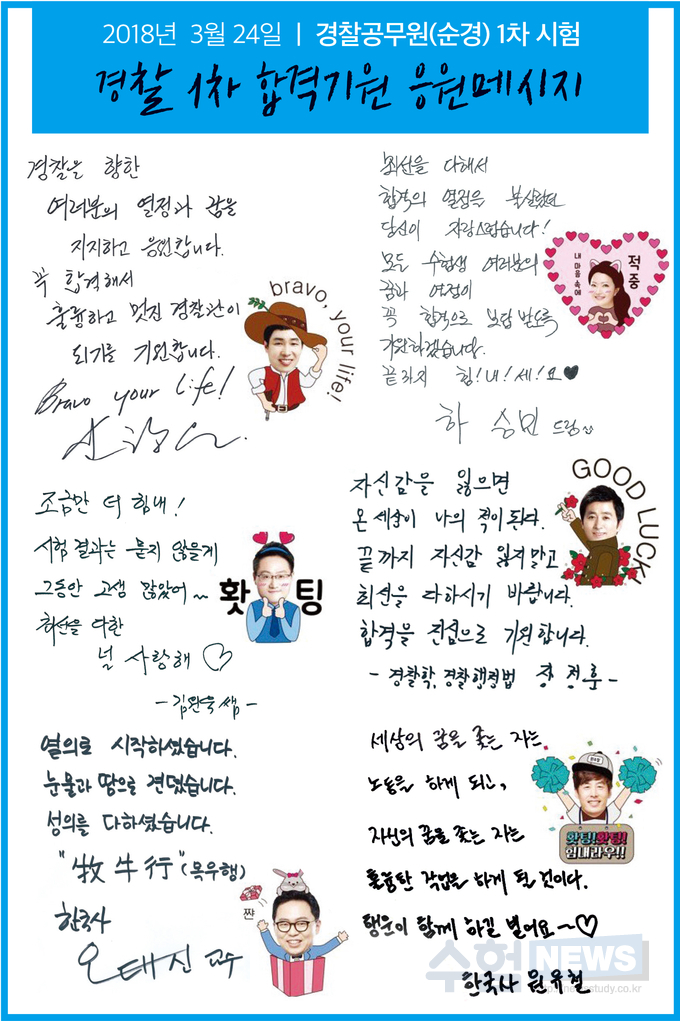 2018년 3월 24일 | 경찰공무원(순경) 1차 시험
경찰 1차 합격기원 응원메시지
경찰을 향한
여러분의 열정과 꿈을
지지하고 응원합니다.
꼭 합격해서
훌륭하고 멋진 경찰관이
되기를 기원합니다.
Bravo your Life!
bravo, your life!
최선을 다해서
합격의 열정을 불살랐던
당신이 자랑스럽습니다!
모든 수험생 여러분의
꿈과 열정이
꼭 합격으로 보답 받도록
기원하겠습니다.
끝까지 힘!내!세!요♥
하승민 드림
내 마음 속에
적중
조금만 더 힘내!
시험 결과는 묻지 않을게
그동안 고생 많았어~
최선을 다한
널 사랑해♡
-김완욱쌤-
홧팅
자신감을 잃으면
온 세상이 나의 적이 된다.
끝까지 자신감 잃지 말고
최선을 다하시기 바랍니다.
합격을 진심으로 기원합니다.
- 경찰학, 경찰행정법 장정훈 -
GOOD LUCK!
열의로 시작하셨습니다.
눈물과 땀으로 견뎠습니다.
성의를 다하셨습니다.
"牧牛行"(목우행)
한국사
오태진 교수
짠
세상의 꿈을 좇는 자는
노동을 하게 되고,
자신의 꿈을 좇는 자는
훌륭한 작업을 하게 될 것이다.
행운이 함께 하길 빌어요~♡
한국사 원유철
홧팅!홧팅!
힘내라우!!
수험NEWS